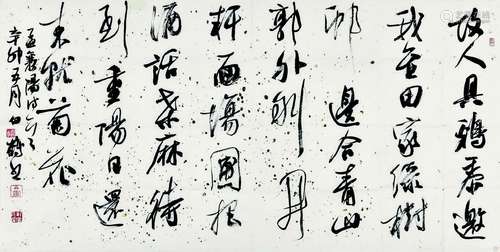 故人具鷄黍邀
我至田家綠樹
邨邊合青山
郭外斜開
軒面場圃把
酒話桑麻待
到重陽日還
来就菊花
孟襄陽诗
辛卯五月